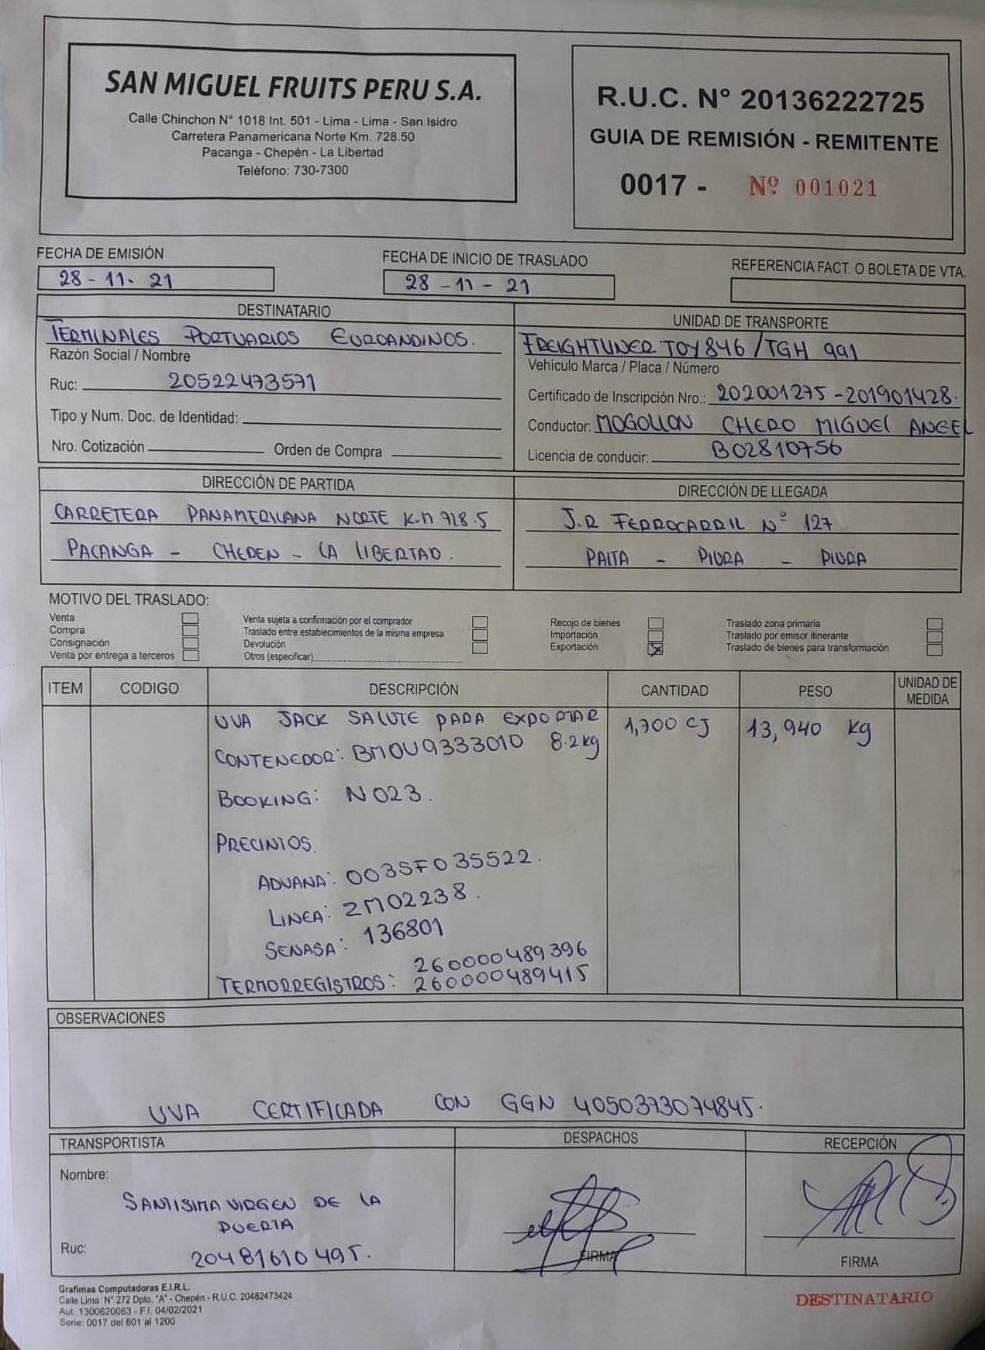 SAN MIGUEL FRUITS PERU S.A.
Calle Chinchon N° 1018 Int. 501 - Lima - Lima - San Isidro
Carretera Panamericana Norte Km. 728.50
Pacanga - Chepén - La Libertad
Teléfono: 730-7300
R.U.C. N° 20136222725
GUIA DE REMISIÓN - REMITENTE
0017 - Nº 001021
FECHA DE EMISIÓN
28 - 11 - 21
FECHA DE INICIO DE TRASLADO
28 - 11 - 21
REFERENCIA FACT. O BOLETA DE VTA.
DESTINATARIO
TERMINALES PORTUARIOS EUROANDINOS.
Razón Social / Nombre
Ruc: 20522473571
Tipo y Num. Doc. de Identidad:
Nro. Cotización Orden de Compra
UNIDAD DE TRANSPORTE
FREIGHTLINER TOY 846 / TGH 991
Vehiculo Marca / Placa / Número
Certificado de Inscripción Nro.: 202001275 - 201901428.
Conductor: MOGOLLON CHERO MIGUEL ANGEL
Licencia de conducir: B02810756
DIRECCIÓN DE PARTIDA
CARRETERA PANAMERICANA NORTE K.M 728.5
PACANGA - CHEPEN - LA LIBERTAD.
DIRECCIÓN DE LLEGADA
J.R FERROCARRIL N° 127
PAITA - PIURA - PIURA
MOTIVO DEL TRASLADO:
Venta
Compra
Consignación
Venta por entrega a terceros
Venta sujeta a confirmación por el comprador
Traslado entre establecimientos de la misma empresa
Devolución
Otros (especificar)
Recojo de bienes
Importación
Exportación X
Traslado zona primaria
Traslado por emisor itinerante
Traslado de bienes para transformación
ITEM CODIGO DESCRIPCIÓN CANTIDAD PESO UNIDAD DE MEDIDA
UVA JACK SALUTE PARA EXPORTAR 1,700 CJ 13,940 kg
CONTENEDOR: BMOU9333010 8.2kg
BOOKING: N023.
PRECINTOS.
ADUANA: 003SF035522.
LINEA: ZM02238.
SENASA: 136801
260000489396
TERMORREGISTROS: 260000489415
OBSERVACIONES
UVA CERTIFICADA CON GGN 4050373074845.
TRANSPORTISTA
Nombre:
SANTISIMA VIRGEN DE LA
PUERTA
Ruc: 20481610495.
DESPACHOS
FIRMA
RECEPCIÓN
FIRMA
Grafimas Computadoras E.I.R.L.
Calle Lima N° 272 Dpto. "A" - Chepén - R.U.C. 20482473424
Aut. 1300620063 - F.I. 04/02/2021
Serie: 0017 del 801 al 1200
DESTINATARIO